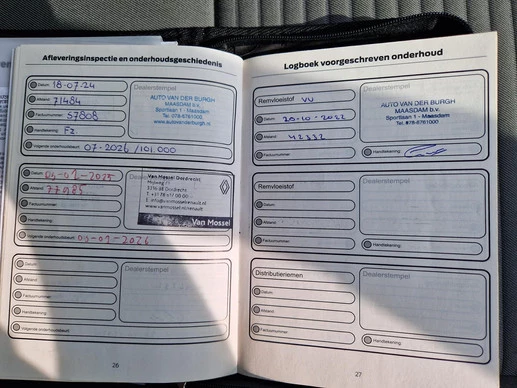 Afleveringsinspectie en onderhoudsgeschiedenis
Datum: 18-07-24
Afstand: 71484
Factuurnummer: 57808
Handtekening: Fz
Volgende onderhoudsbeurt: 07-2026/101.000
Dealerstempel
AUTO VAN DER BURGH
MAASDAM b.v.
Sportlaan 1 - Maasdam
Tel. 078-6761000
www.autovanderburgh.nl
Datum: 03-01-2025
Afstand: 77985
Factuurnummer:
Handtekening:
Volgende onderhoudsbeurt: 03-01-2026
Van Mossel Dordrecht
Van Mossel
Datum:
Afstand:
Factuurnummer:
Handtekening:
Volgende onderhoudsbeurt:
Dealerstempel
26
Logboek voorgeschreven onderhoud
Remvloeistof VV
Datum: 20-10-2022
Afstand: 42332
Factuurnummer:
AUTO VAN DER BURGH
MAASDAM b.v.
Sportlaan 1 - Maasdam
Tel. 078-6761000
Handtekening:
Remvloeistof
Dealerstempel
Datum:
Afstand:
Factuurnummer:
Handtekening:
Distributieriemen
Dealerstempel
Datum:
Afstand:
Factuurnummer:
Handtekening:
27